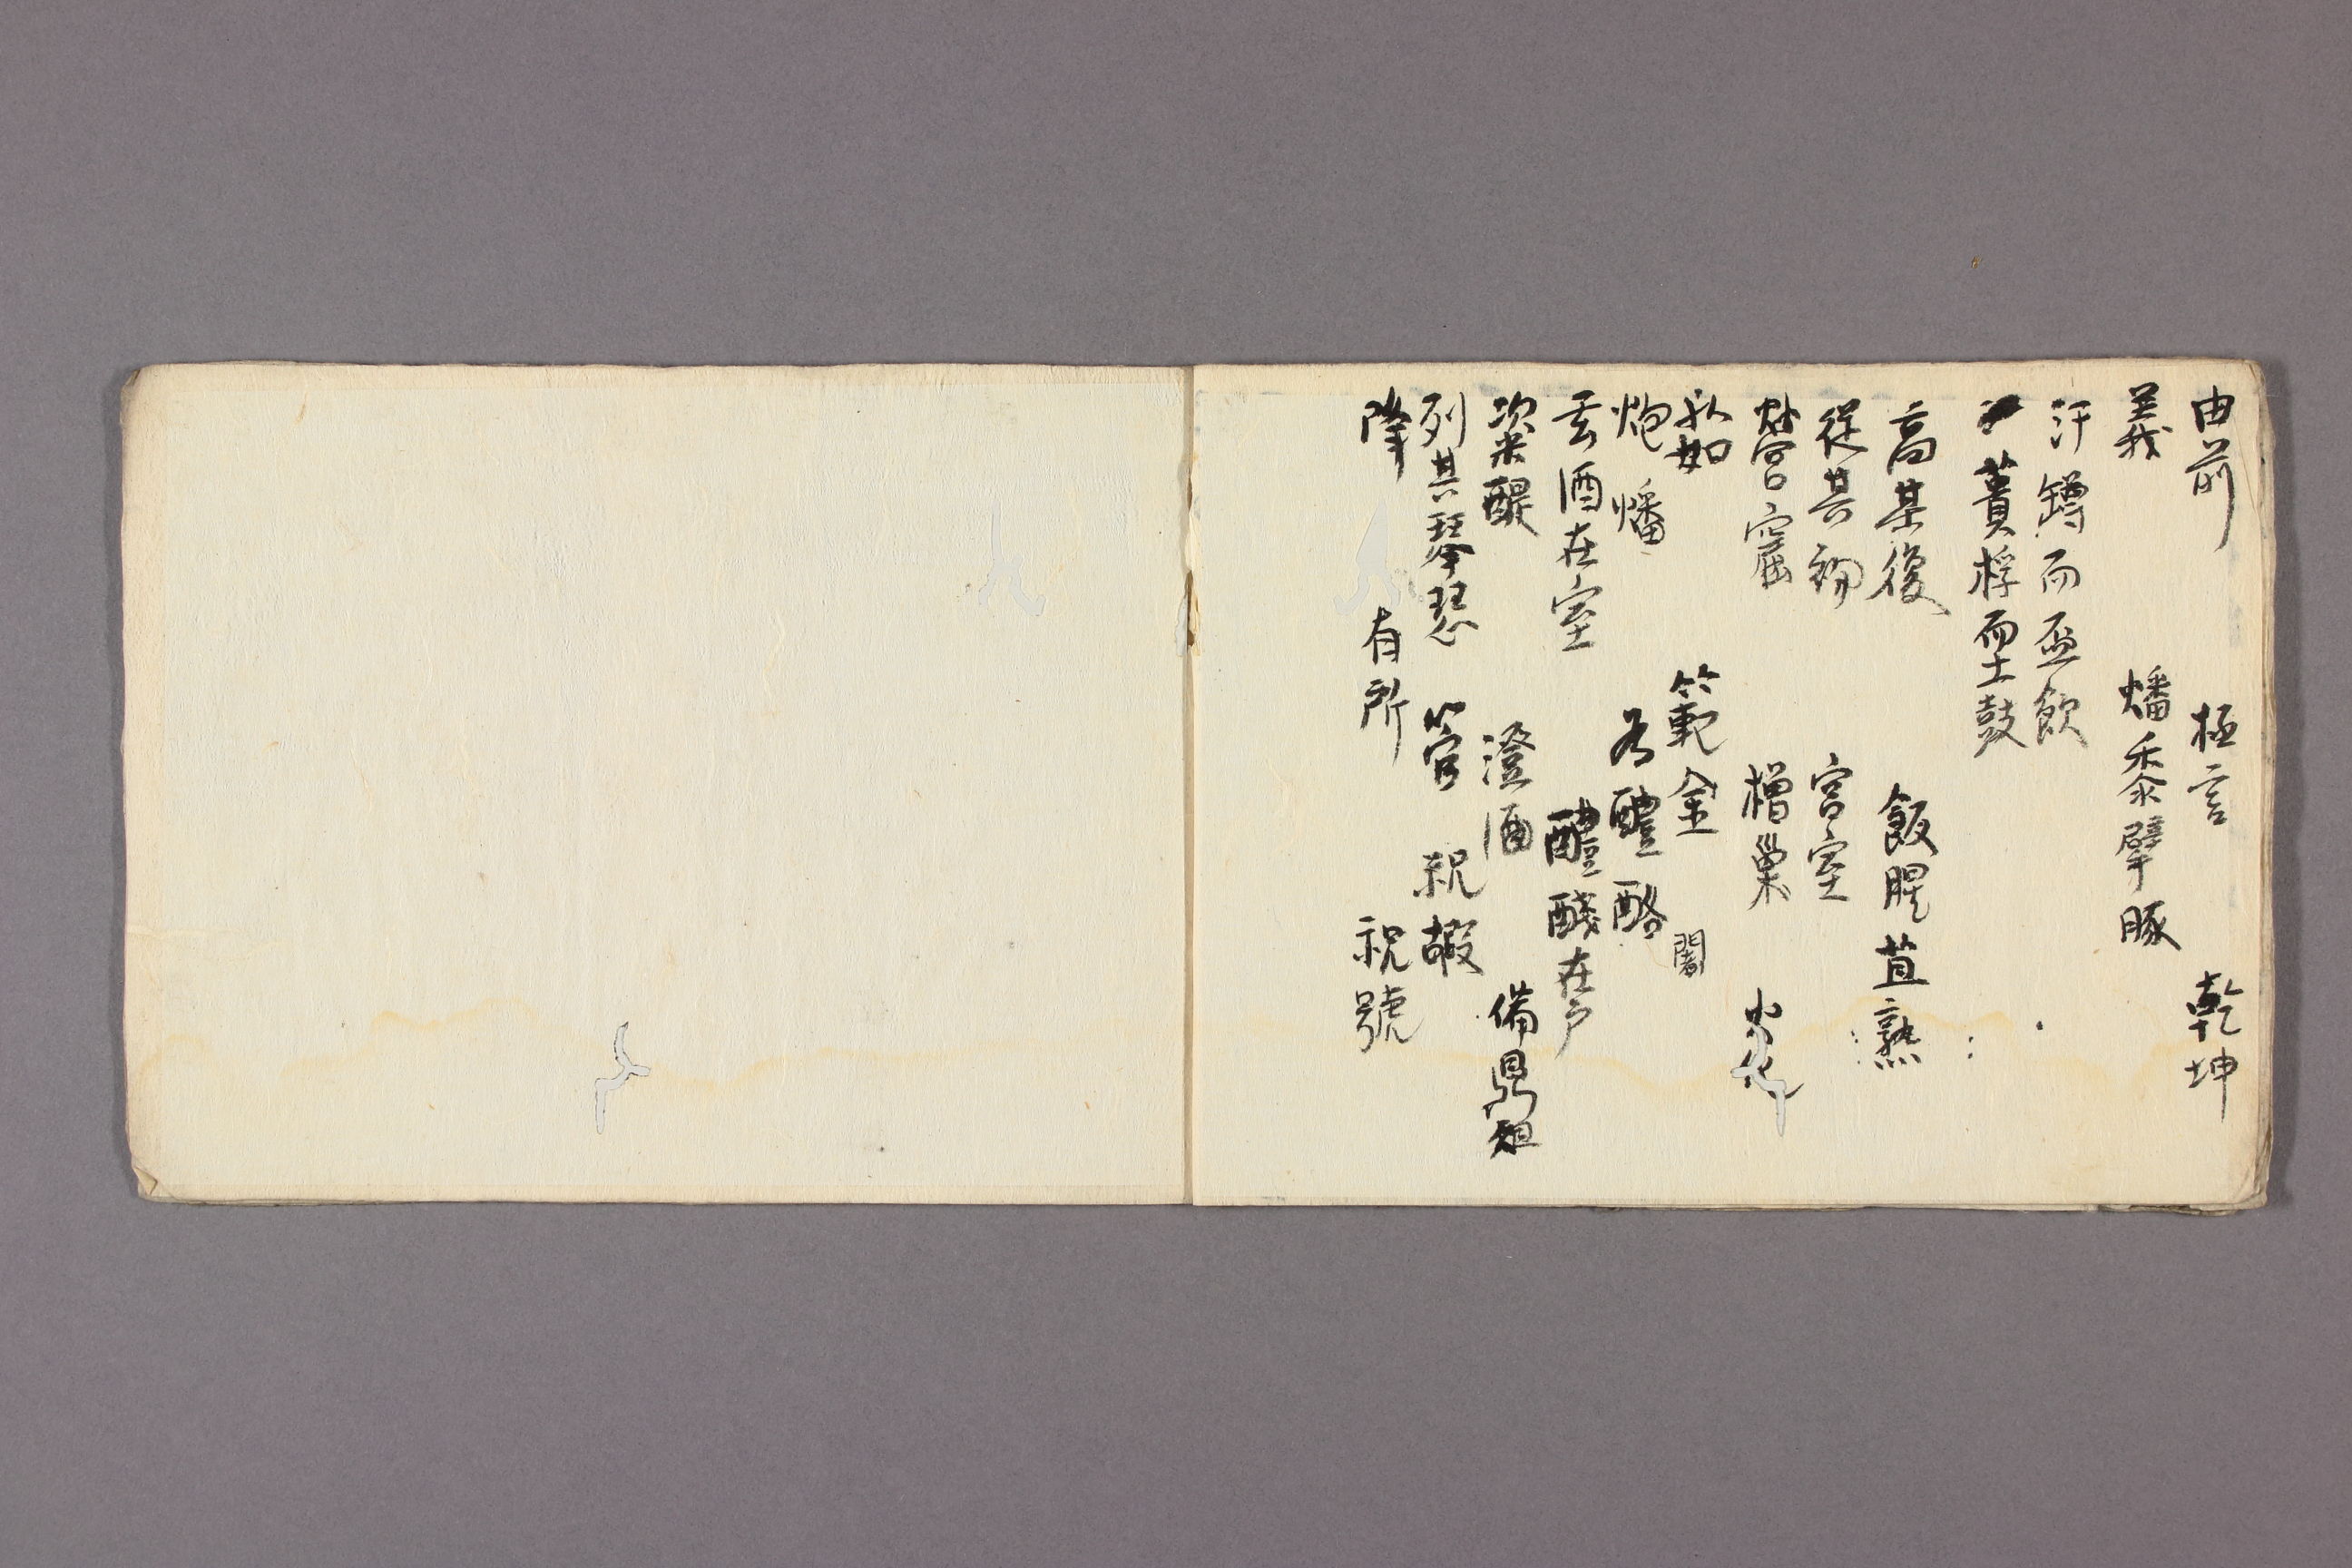 由前　極言　乾坤
義　燔黍擘豚
汙罇而盃飲
蕢桴而堊鼓
高某後　飯腥苴熟
従其初　宮室
營窟　橧巢
範金　闍
炮　燔　為醴酪
玄酒在室　醴醆在戸
粢醍　澄酒　備鼎俎
列其琴瑟　管　祝嘏
降　有所　祝號